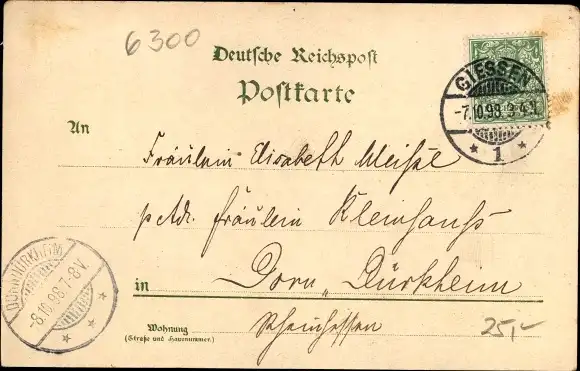 6300
Deutsche Reichspost
Postkarte
GIESSEN
-7.10.98. 3-4 N
* 1 *
An
Fräulein Elisabeth
p Adr. Fräulein Kleinhanß
in Dorn Dürkheim
Rheinhessen
Wohnung
(Straße und Hausnummer.)
25,-
-8.10.98. 7-8 V.